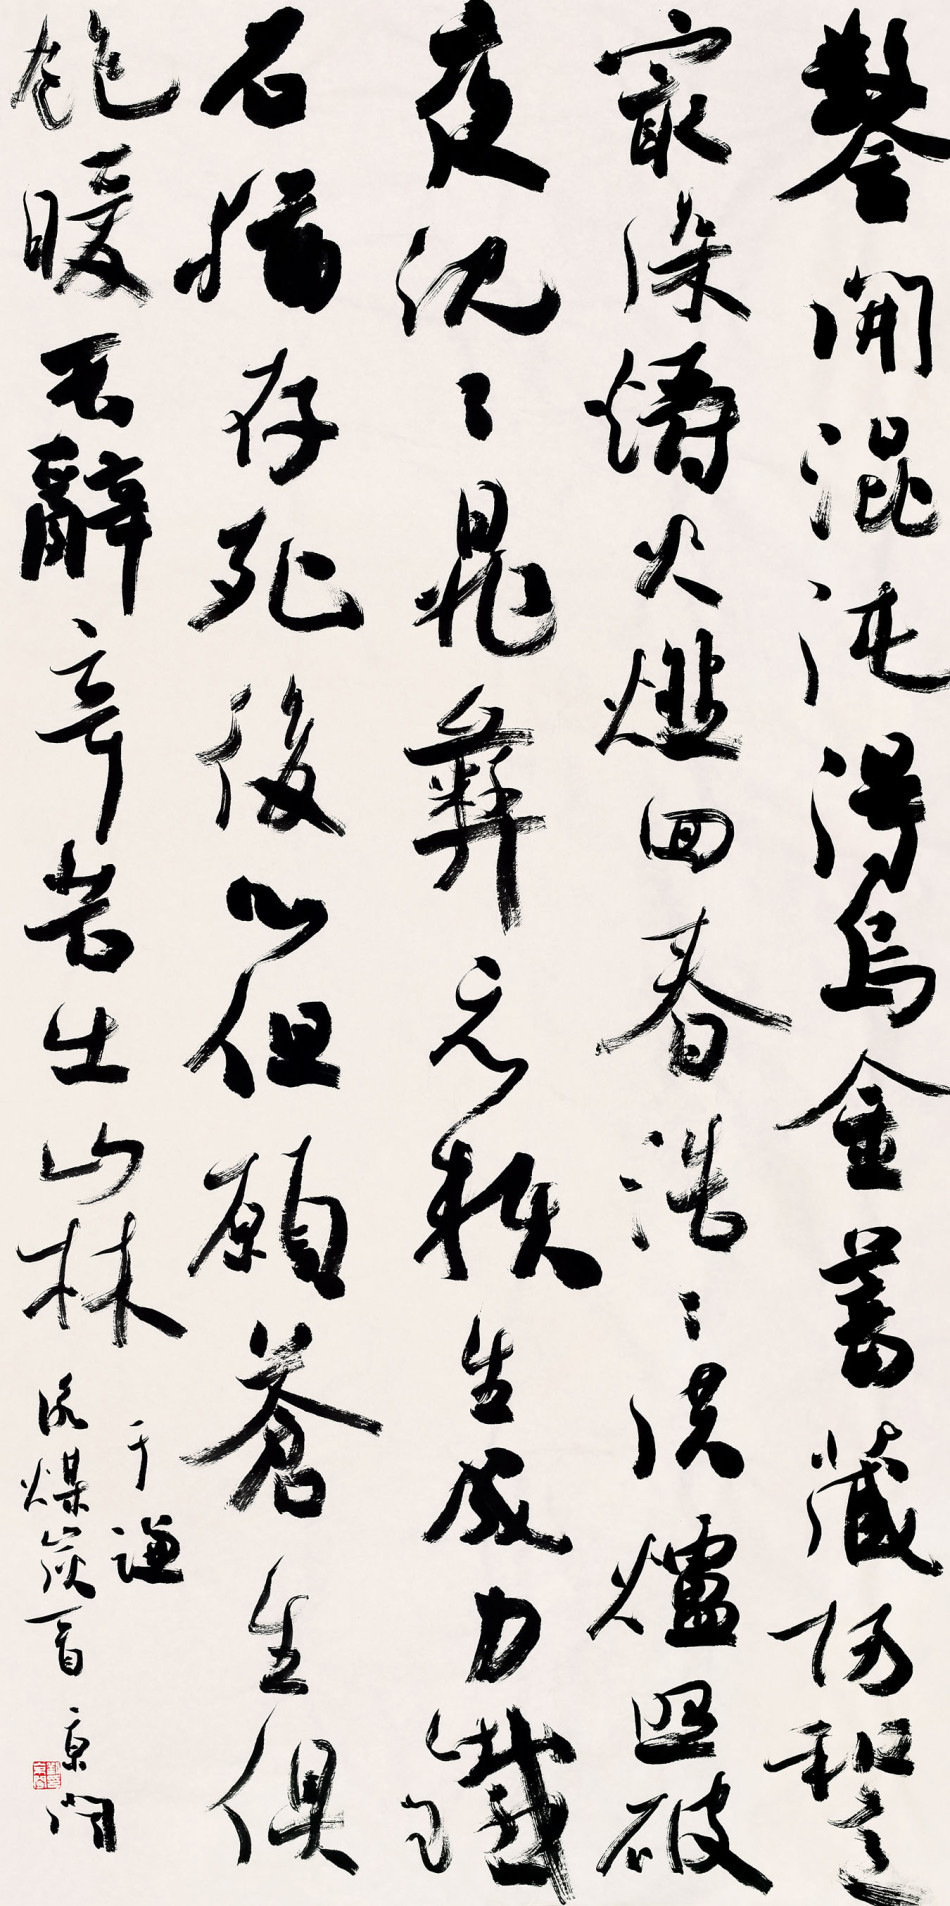 鑿開混沌得烏金蓄藏陽和意
最深爝火燃回春浩〻洪爐照破
夜沈〻鼎彝元賴生成力鐵
石猶存死後心但願蒼生俱
飽暖不辭辛苦出山林
于謙
詠煤炭一首